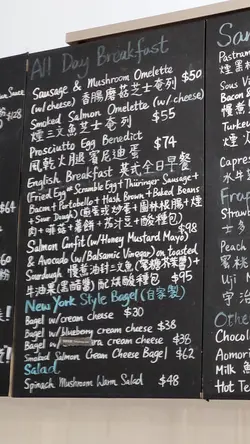 All Day Breakfast
Sausage & Mushroom Omelette $50
(w/cheese) 香腸蘑菇芝士奄列
Smoked Salmon Omelette (w/cheese)
煙三文魚芝士奄列 $55
Prosciutto Egg Benedict $74
風乾火腿賓尼迪蛋
English Breakfast 英式全日早餐
(Fried Egg or Scramble Egg + Thüringer Sausage +
Bacon + Portobello + Hash Brown + Baked Beans
+ Sour Dough) (煎蛋或炒蛋+圖林根腸+煙
肉+啡菇+薯餅+茄汁豆+酸種包) $98
Salmon Confit (w/Honey Mustard Mayo)
& Avocado (w/Balsamic Vinegar) on toasted
Sourdough 慢煮油封三文魚(蜜糖芥醬)+
牛油果(黑醋)配烘酸種包 $95
New York Style Bagel (自家製)
Bagel w/cream cheese $30
Bagel w/blueberry cream cheese $38
Bagel cream cheese $38
Smoked Salmon Cream Cheese Bagel $62
Salad
Spinach Mushroom Warm Salad $48
Pastram
煙
Bacon &
慢煮
Turkey
煙火
Crois
士多
Peach
蜜桃
Uji
宇治
Othe
Chocol
Aomori
Milk
Hot Te